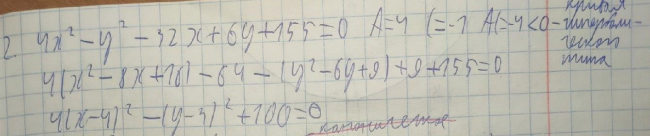 2. 4x² - y² - 32x + 6y + 155 = 0 A=4 C=-1 AC=-4<0 - кривая гиперболического типа
4(x² - 8x + 16) - 64 - (y² - 6y + 9) + 9 + 155 = 0
4(x-4)² - (y-3)² + 100 = 0